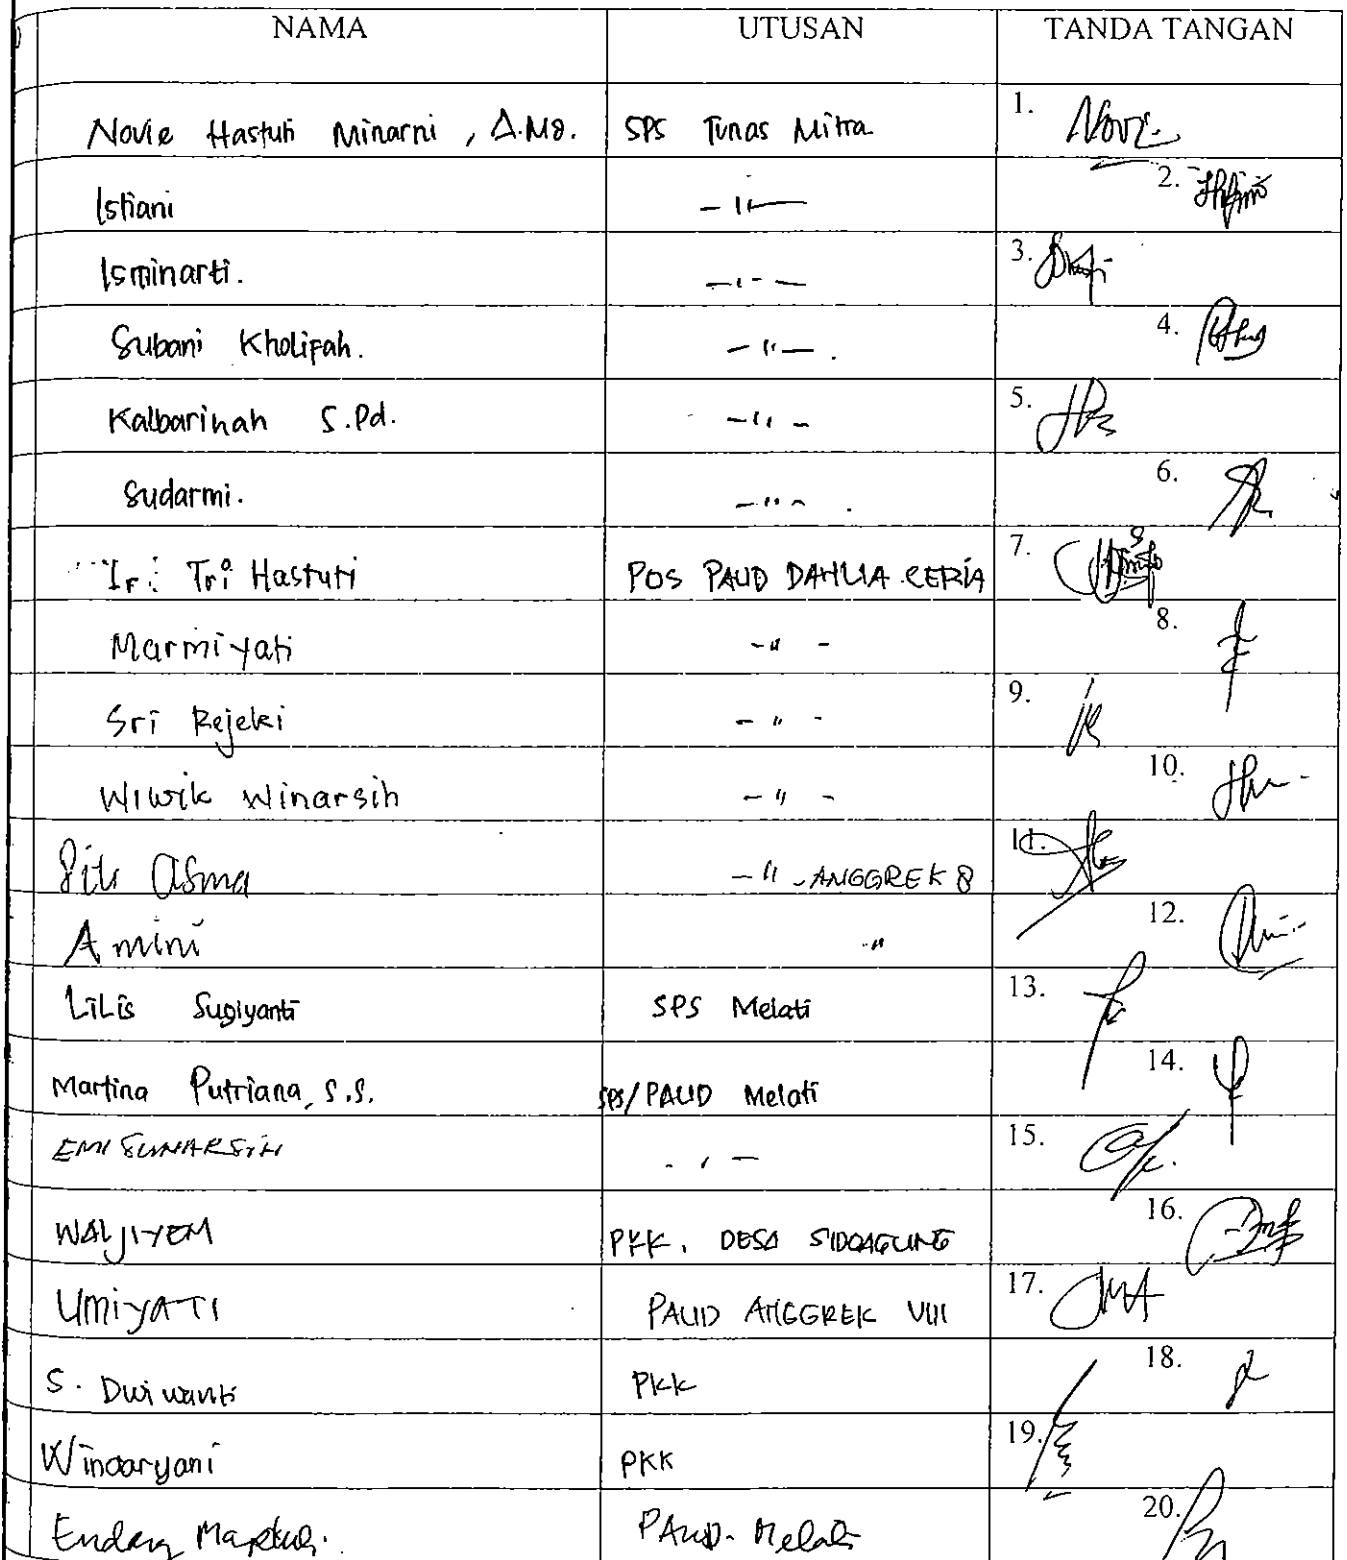 NAMA UTUSAN TANDA TANGAN
Novie Hastuti Minarni, A.Ma. SPS Tunas Mitra 1. Novi
Istiani - " - 2.
Isminarti. - " - 3.
Subani Kholifah. - " - . 4.
Kalbarinah S.Pd. - " - 5.
Sudarmi. - " - . 6.
Ir. Tri Hastuti POS PAUD DAHLIA CERIA 7.
Marmiyati - " - 8.
Sri Rejeki - " - 9.
Wiwik Winarsih - " - 10.
Siti Asma - " - ANGGREK 8 11.
Amini " 12.
Lilis Sugiyanti SPS Melati 13.
Martina Putriana, S.S. SPS/PAUD Melati 14.
EMI SUNARSIH - " - 15.
WALJIYEM PKK. DESA SIDOAGUNG 16.
UMIYATI PAUD ANGGREK VIII 17.
S. Dwi wanti PKK 18.
Windaryani PKK 19.
Endang PAUD. Melati 20.